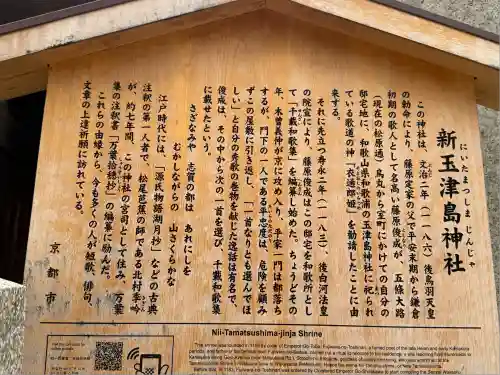 新玉津島神社
にいたまつしまじんじゃ
この神社は、文治二年(一一八六)後鳥羽天皇
の勅命により、藤原定家の父で平安末期から鎌倉
初期の歌人として名高い藤原俊成が、五條大路
(現在の松原通)烏丸から室町にかけての自分の
邸宅地に、和歌山県和歌浦の玉津島神社に祀られ
ている歌道の神「衣通郎姫」を勧請したことに由
来する。
それに先立つ寿永二年(一一八三)、後白河法皇
の院宣により、藤原俊成はこの邸宅を和歌所とし
て「千載和歌集」を編纂し始めた。ちょうどその
年、木曽義仲が京に攻め入り、平家一門は都落ち
するが、門下の一人である平忠度は、危険を顧み
ずこの屋敷に引き返し、「一首なりとも選んでほ
しい」と自分の秀歌の巻物を献じた逸話は有名で、
俊成は、その中から次の一首を選び、千載和歌集
に載せたという。
さざなみや 志賀の都は あれにしを
むかしながらの 山さくらかな
江戸時代には、「源氏物語湖月抄」などの古典
注釈の第一人者で、松尾芭蕉の師である北村季吟
が、約七年間、この神社の宮司として住み、万葉
集の注釈書「万葉拾穂抄」の編纂に励んだ。
これらの由縁から、今も多くの人が短歌、俳句、
文章の上達祈願に訪れている。
京都市
Nii-Tamatsushima-jinja Shrine